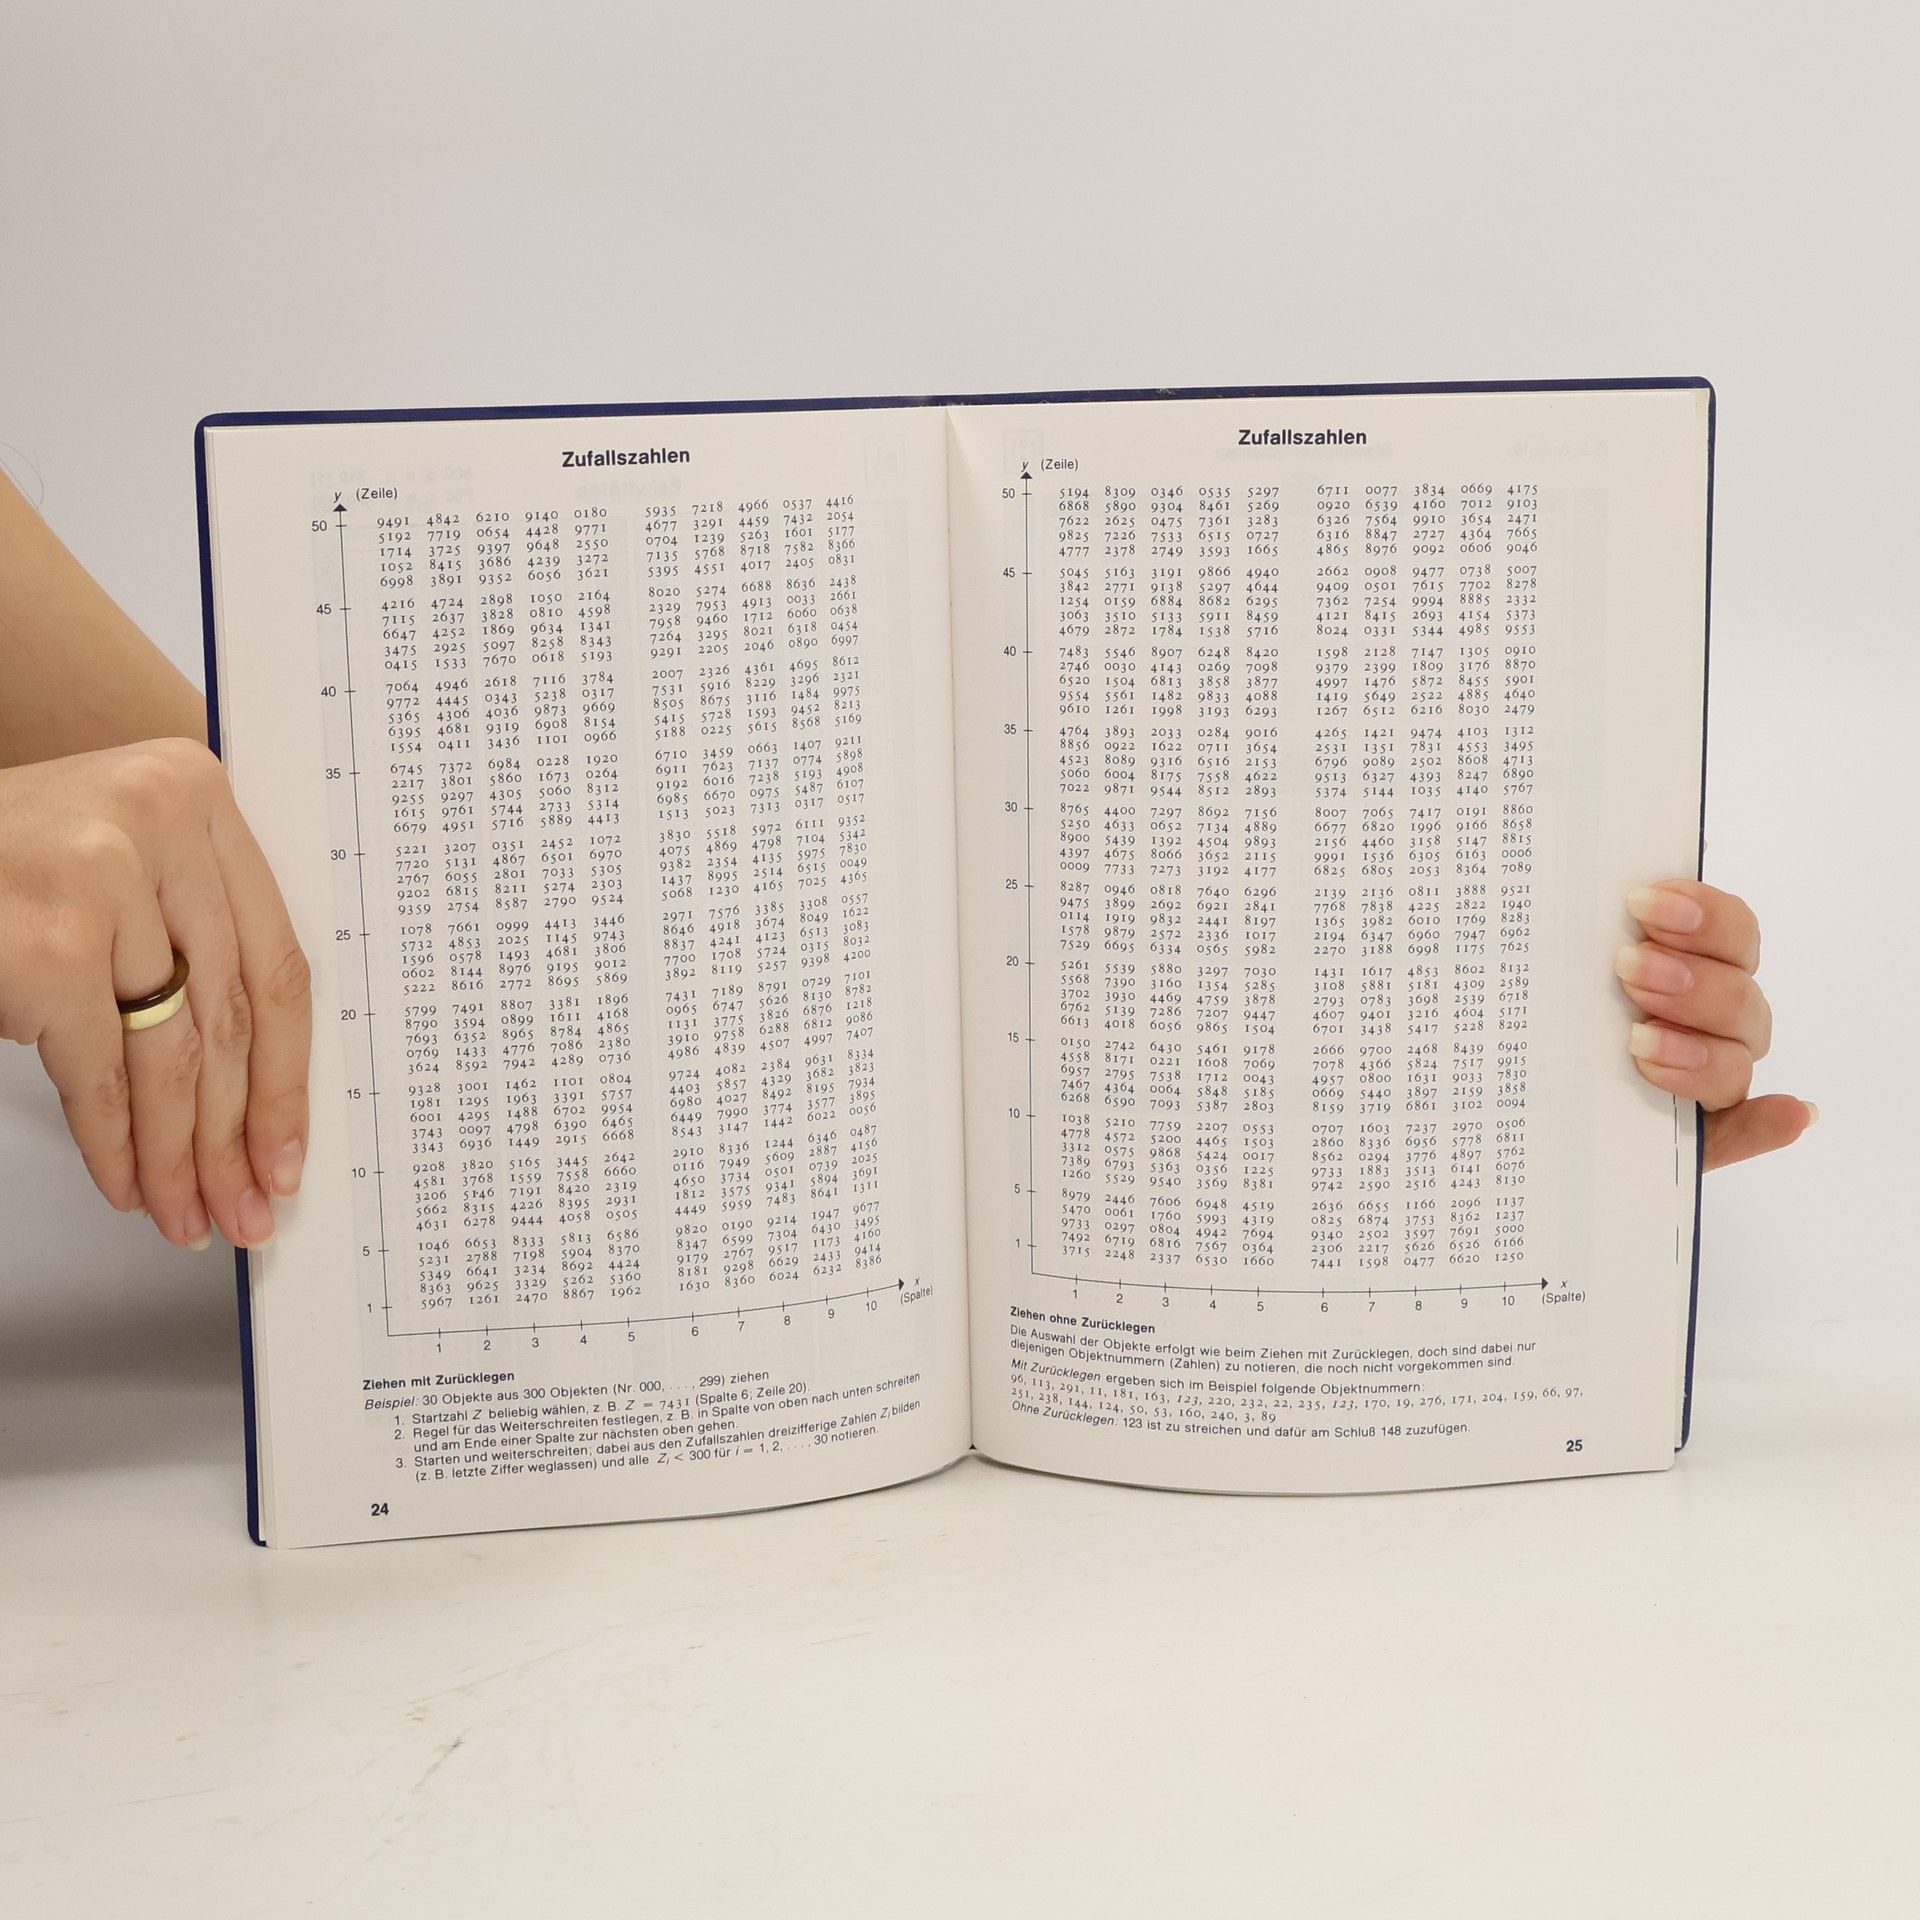 Zufallszahlen
y (Zeile)
50 9491 4842 6210 9140 0180 5935 7218 4966 0537 4416
5192 7719 0654 4428 9771 4677 3291 4459 7432 2054
1714 3725 9397 9648 2550 0704 1239 5263 1601 5177
1052 8415 3686 4239 3272 7135 5768 8718 7582 8366
6998 3891 9352 6056 3621 5395 4551 4017 2405 0831
45 4216 4724 2898 1050 2164 8020 5274 6688 8636 2438
7115 2637 3828 0810 4598 2329 7953 4913 0033 2661
6647 4252 1869 9634 1341 7958 9460 1712 6060 0638
3475 2925 5097 8258 8343 7264 3295 8021 6318 0454
0415 1533 7670 0618 5193 9291 2205 2046 0890 6997
40 7064 4946 2618 7116 3784 2007 2326 4361 4695 8612
9772 4445 0343 5238 0317 7531 5916 8229 3296 2321
5365 4306 4036 9873 9669 8505 8675 3116 1484 9975
6395 4681 9319 6908 8154 5415 5728 1593 9452 8213
1554 0411 3436 1101 0966 5188 0225 5615 8568 5169
35 6745 7372 6984 0228 1920 6710 3459 0663 1407 9211
2217 3801 5860 1673 0264 6911 7623 7137 0774 5898
9255 9297 4305 5060 8312 9192 6016 7238 5193 4908
1615 9761 5744 2733 5314 6985 6670 0975 5487 6107
6679 4951 5716 5889 4413 1513 5023 7313 0317 0517
30 5221 3207 0351 2452 1072 3830 5518 5972 6111 9352
7720 5131 4867 6501 6970 4075 4869 4798 7104 5342
2767 6055 2801 7033 5305 9382 2354 4135 5975 7830
9202 6815 8211 5274 2303 1437 8995 2514 6515 0049
9359 2754 8587 2790 9524 5068 1230 4165 7025 4365
25 1078 7661 0999 4413 3446 2971 7576 3385 3308 0557
5732 4853 2025 1145 9743 8646 4918 3674 8049 1622
1596 0578 1493 4681 3806 8837 4241 4123 6513 3083
0602 8144 8976 9195 9012 7700 1708 5724 0315 8032
5222 8616 2772 8695 5869 3892 8119 5257 9398 4200
20 5799 7491 8807 3381 1896 7431 7189 8791 0729 7101
8790 3594 0899 1611 4168 0965 6747 5626 8130 8782
7693 6352 8965 8784 4865 1131 3775 3826 6876 1218
0769 1433 4776 7086 2380 3910 9758 6288 6812 9086
3624 8592 7942 4289 0736 4986 4839 4507 4997 7407
15 9328 3001 1462 1101 0804 9724 4082 2384 9631 8334
1981 1295 1963 3391 5757 4403 5857 4329 3682 3823
6001 4295 1488 6702 9954 6980 4027 8492 8195 7934
3743 0097 4798 6390 6465 6449 7990 3774 3577 3895
3343 6936 1449 2915 6668 8543 3147 1442 6022 0056
10 9208 3820 5165 3445 2642 2910 8336 1244 6346 0487
4581 3768 1559 7558 6660 0116 7949 5609 2887 4156
3206 5146 7191 8420 2319 4650 3734 0501 0739 2025
5662 8315 4226 8395 2931 1812 3575 9341 5894 3691
4631 6278 9444 4058 0505 4449 5959 7483 8641 1311
5 1046 6653 8333 5813 6586 9820 0190 9214 1947 9677
5231 2788 7198 5904 8370 8347 6599 7304 6430 3495
5349 6641 3234 8692 4424 9179 2767 9517 1173 4160
8363 9625 3329 5262 5360 8181 9298 6629 2433 9414
1 5967 1261 2470 8867 1962 1630 8360 6024 6232 8386
x
1 2 3 4 5 6 7 8 9 10 (Spalte)
Ziehen mit Zurücklegen
Beispiel: 30 Objekte aus 300 Objekten (Nr. 000, . . . , 299) ziehen
1. Startzahl Z beliebig wählen, z. B. Z = 7431 (Spalte 6; Zeile 20).
2. Regel für das Weiterschreiten festlegen, z. B. in Spalte von oben nach unten schreiten
und am Ende einer Spalte zur nächsten oben gehen.
3. Starten und weiterschreiten; dabei aus den Zufallszahlen dreizifferige Zahlen Zi bilden
(z. B. letzte Ziffer weglassen) und alle Zi < 300 für i = 1, 2, . . . , 30 notieren.
24
Zufallszahlen
y (Zeile)
50 5194 8309 0346 0535 5297 6711 0077 3834 0669 4175
6868 5890 9304 8461 5269 0920 6539 4160 7012 9103
7622 2625 0475 7361 3283 6326 7564 9910 3654 2471
9825 7226 7533 6515 0727 6316 8847 2727 4364 7665
4777 2378 2749 3593 1665 4865 8976 9092 0606 9046
45 5045 5163 3191 9866 4940 2662 0908 9477 0738 5007
3842 2771 9138 5297 4644 9409 0501 7615 7702 8278
1254 0159 6884 8682 6295 7362 7254 9994 8885 2332
3063 3510 5133 5911 8459 4121 8415 2693 4154 5373
4679 2872 1784 1538 5716 8024 0331 5344 4985 9553
40 7483 5546 8907 6248 8420 1598 2128 7147 1305 0910
2746 0030 4143 0269 7098 9379 2399 1809 3176 8870
6520 1504 6813 3858 3877 4997 1476 5872 8455 5901
9554 5561 1482 9833 4088 1419 5649 2522 4885 4640
9610 1261 1998 3193 6293 1267 6512 6216 8030 2479
35 4764 3893 2033 0284 9016 4265 1421 9474 4103 1312
8856 0922 1622 0711 3654 2531 1351 7831 4553 3495
4523 8089 9316 6516 2153 6796 9089 2502 8608 4713
5060 6004 8175 7558 4622 9513 6327 4393 8247 6890
7022 9871 9544 8512 2893 5374 5144 1035 4140 5767
30 8765 4400 7297 8692 7156 8007 7065 7417 0191 8860
5250 4633 0652 7134 4889 6677 6820 1996 9166 8658
8900 5439 1392 4504 9893 2156 4460 3158 5147 8815
4397 4675 8066 3652 2115 9991 1536 6305 6163 0006
0009 7733 7273 3192 4177 6825 6805 2053 8364 7089
25 8287 0946 0818 7640 6296 2139 2136 0811 3888 9521
9475 3899 2692 6921 2841 7768 7838 4225 2822 1940
0114 1919 9832 2441 8197 1365 3982 6010 1769 8283
1578 9879 2572 2336 1017 2194 6347 6960 7947 6962
7529 6695 6334 0565 5982 2270 3188 6998 1175 7625
20 5261 5539 5880 3297 7030 1431 1617 4853 8602 8132
5568 7390 3160 1354 5285 3108 5881 5181 4309 2589
3702 3930 4469 4759 3878 2793 0783 3698 2539 6718
6762 5139 7286 7207 9447 4607 9401 3216 4604 5171
6613 4018 6056 9865 1504 6701 3438 5417 5228 8292
15 0150 2742 6430 5461 9178 2666 9700 2468 8439 6940
4558 8171 0221 1608 7069 7078 4366 5824 7517 9915
6957 2795 7538 1712 0043 4957 0800 1631 9033 7830
7467 4364 0064 5848 5185 0669 5440 3897 2159 3858
6268 6590 7093 5387 2803 8159 3719 6861 3102 0094
10 1038 5210 7759 2207 0553 0707 1603 7237 2970 0506
4778 4572 5200 4465 1503 2860 8336 6956 5778 6811
3312 0575 9868 5424 0017 8562 0294 3776 4897 5762
7389 6793 5363 0356 1225 9733 1883 3513 6141 6076
1260 5529 9540 3569 8381 9742 2590 2516 4243 8130
5 8979 2446 7606 6948 4519 2636 6655 1166 2096 1137
5470 0061 1760 5993 4319 0825 6874 3753 8362 1237
9733 0297 0804 4942 7694 9340 2502 3597 7691 5000
7492 6719 6816 7567 0364 2306 2217 5626 6526 6166
1 3715 2248 2337 6530 1660 7441 1598 0477 6620 1250
x
1 2 3 4 5 6 7 8 9 10 (Spalte)
Ziehen ohne Zurücklegen
Die Auswahl der Objekte erfolgt wie beim Ziehen mit Zurücklegen, doch sind dabei nur
diejenigen Objektnummern (Zahlen) zu notieren, die noch nicht vorgekommen sind.
Mit Zurücklegen ergeben sich im Beispiel folgende Objektnummern:
96, 113, 291, 11, 181, 163, 123, 220, 232, 22, 235, 123, 170, 19, 276, 171, 204, 159, 66, 97,
251, 238, 144, 124, 50, 53, 160, 240, 3, 89
Ohne Zurücklegen: 123 ist zu streichen und dafür am Schluß 148 zuzufügen.
25